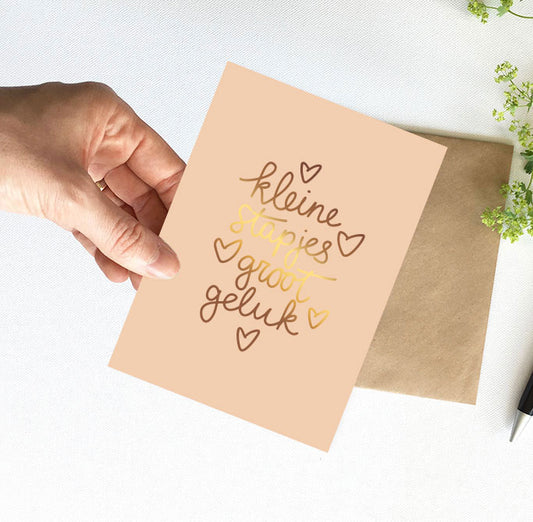 kleine
stapjes
groot
geluk